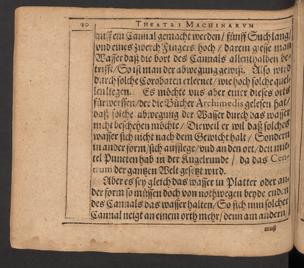 20 THEATRI MACHINARVM
auff ein Cannal gemacht werden / fünff Schuch lang /
vnd eines zwerch Fingers hoch / darein giesse man
Wasser daß die bort des Cannals allenthalben be-
treffe / So ist man der abwegung gewiß. Also wird
durch solche Corobaten erlernet / wie hoch solche quel-
len ligen. Es möchte vns aber einer dieses orts
fürwerffen / der die Bücher Archimedis gelesen hat /
daß solche abwegung der Wasser durch das wasser
nicht beschehen möchte / Derweil er wil daß solches
wasser sich nicht nach dem Gewicht halt / Sondern
in ander form / sich aufflege / vnd an den ort / den mit-
tel Puncten hab in der Kugelrunde / da das Cen-
trum der gantzen Welt gesetzt wird.
Aber es sey gleich das wasser in Platter oder an-
der form so müssen doch von nothwegen beyde enden
des Cannals das wasser halten / So sich nun solcher
Cannal neigt an einem orth mehr / denn am andern /
muß